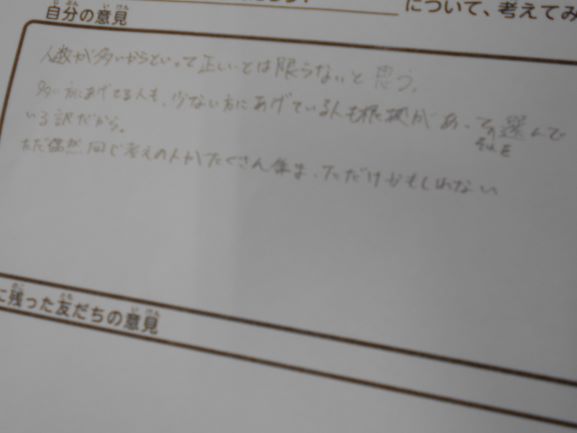 について、考えてみ
自分の意見
じぶん いけん
人数が多いからといって正しいとは限らないと思う。
多い方にあげてる人も、少ない方にあげている人も根拠があって選んで
それを
いる訳だから。
ただ偶然同じ考えの人がたくさん集まっただけかもしれない
に残った友だちの意見
のこ とも いけん